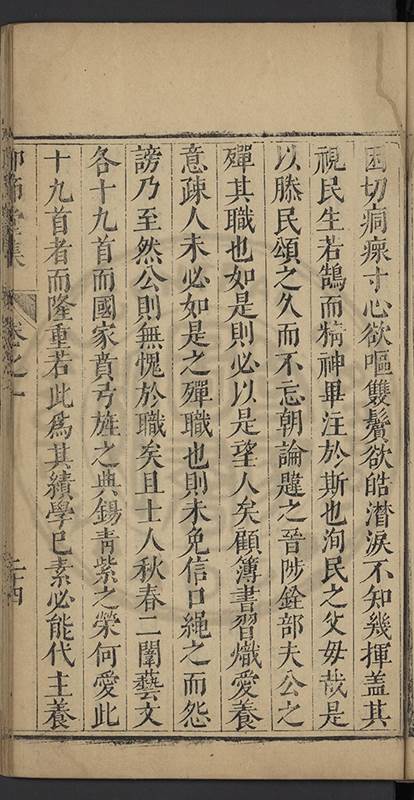 困切痌瘝寸心欲嘔雙鬢欲皓潸淚不知幾揮盖其
視民生若鵠而精神畢注於斯也洵民之父母哉是
以勝民頌之久而不忘朝論韙之晉陟銓部夫公之
殫其職也如是則必以是望人矣顧簿書習熾愛養
意疎人未必如是之殫職也則未免信口繩之而怨
謗乃至然公則無愧於職矣且士人秋春二闈藝文
各十九首而國家賁弓旌之典錫青紫之榮何愛此
十九首者而隆重若此為其績學已素必能代主養
堂集
卷之一
二十四